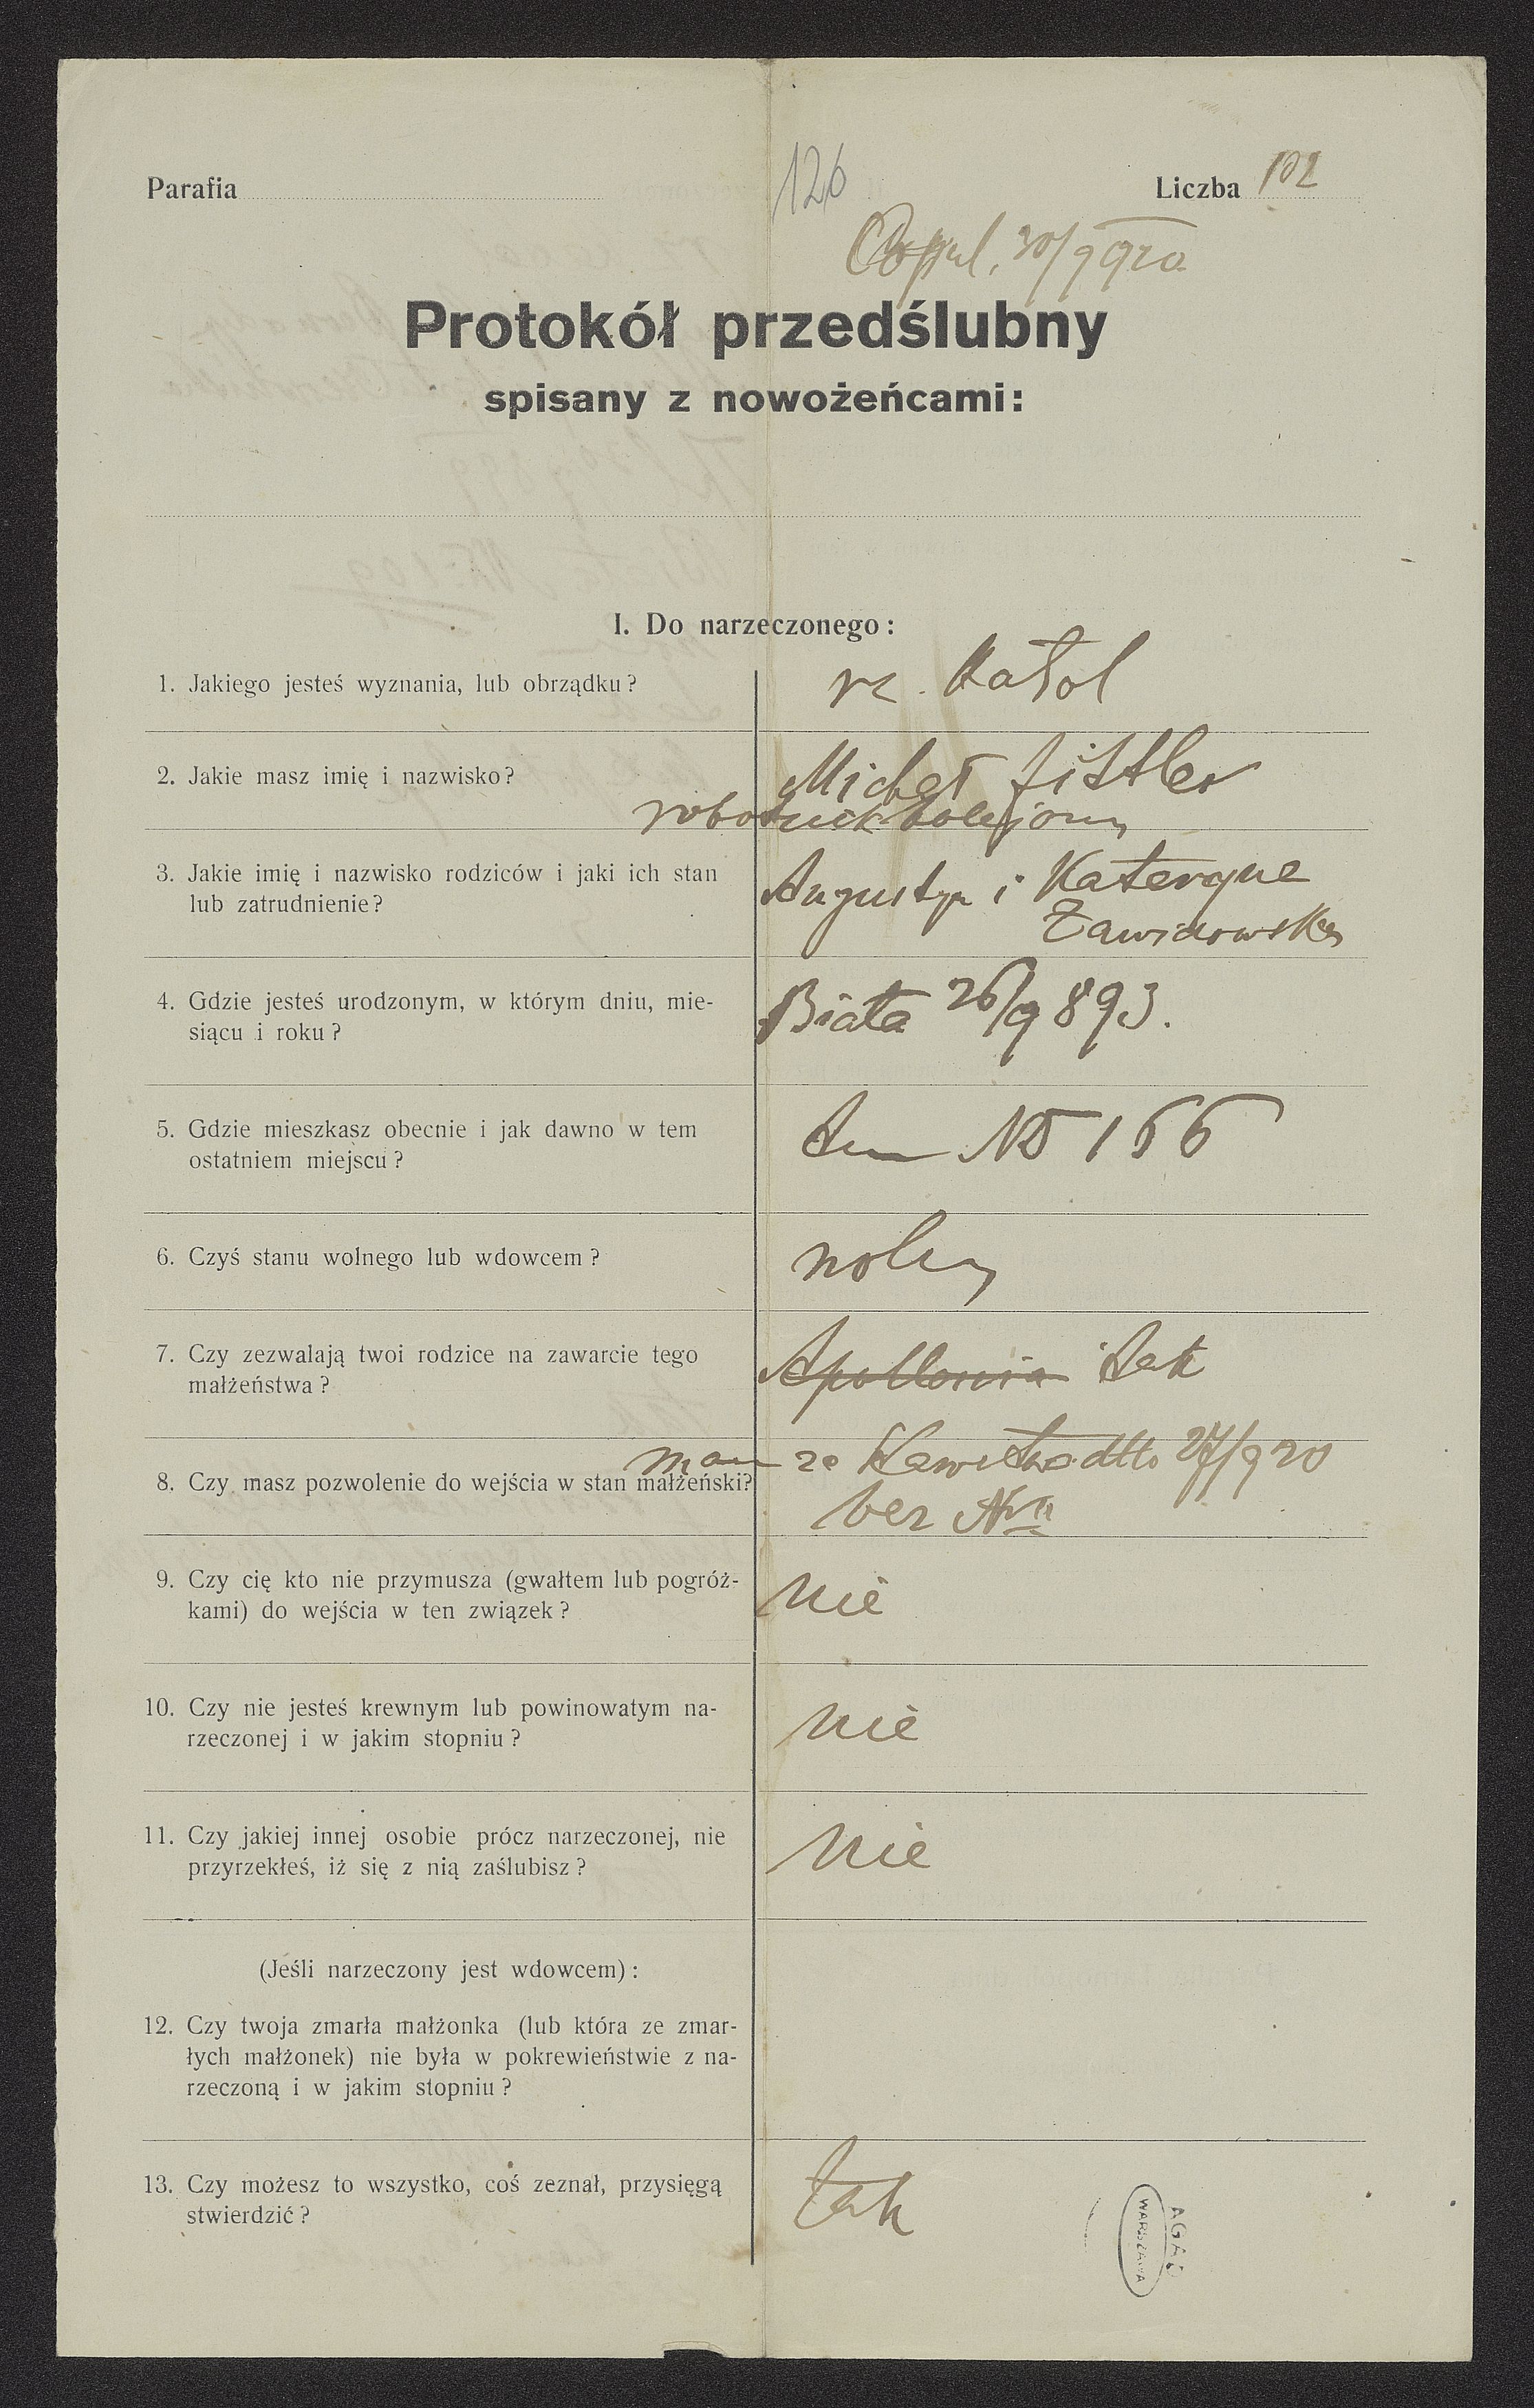 126
Parafia
Liczba 102
Copul. 30/9 920
Protokół przedślubny
spisany z nowożeńcami:
I. Do narzeczonego:
1. Jakiego jesteś wyznania, lub obrządku? rz. Katol
2. Jakie masz imię i nazwisko? Michał Fistler
robotnik kolejowy
3. Jakie imię i nazwisko rodziców i jaki ich stan
lub zatrudnienie? Augustyn i Kateryna
Zawidowska
4. Gdzie jesteś urodzonym, w którym dniu, mie-
siącu i roku? Biała 26/9 893.
5. Gdzie mieszkasz obecnie i jak dawno w tem
ostatniem miejscu? No 166
6. Czyś stanu wolnego lub wdowcem? wolny
7. Czy zezwalają twoi rodzice na zawarcie tego
małżeństwa? Apollonia tak
8. Czy masz pozwolenie do wejścia w stan małżeński? mam 27/9 20
bez Nru
9. Czy cię kto nie przymusza (gwałtem lub pogróż-
kami) do wejścia w ten związek? nie
10. Czy nie jesteś krewnym lub powinowatym na-
rzeczonej i w jakim stopniu? nie
11. Czy jakiej innej osobie prócz narzeczonej, nie
przyrzekłeś, iż się z nią zaślubisz? nie
(Jeśli narzeczony jest wdowcem):
12. Czy twoja zmarła małżonka (lub która ze zmar-
łych małżonek) nie była w pokrewieństwie z na-
rzeczoną i w jakim stopniu?
13. Czy możesz to wszystko, coś zeznał, przysięgą
stwierdzić? tak
AGAD
WARSZAWA